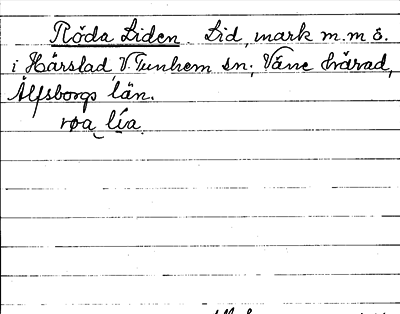 Röda Liden. Lid, mark m.m ö.
i Hårslad V. Tunhem sn; Väne härad,
Älfsborgs län.
røa lía